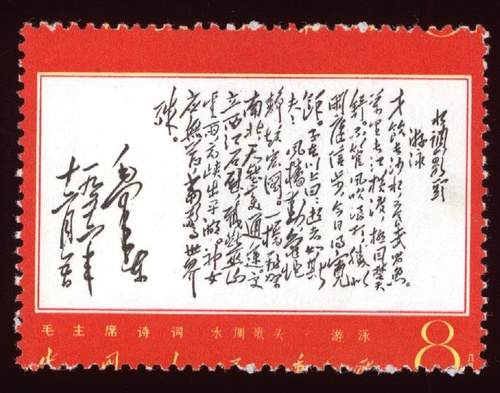 水调歌头
游泳
才饮长沙水又食武昌鱼。
万里长江横渡极目楚天
舒不管风吹浪打胜似
闲庭信步今日得宽
馀子在川上曰逝者如斯
夫风樯动龟蛇
静起宏图一桥飞架
南北天堑变通途更
立西江石壁截断巫山
云雨高峡出平湖神女
应无恙当惊世界
殊。
毛泽东
一九五六年
十二月五日
毛主席诗词 水调歌头·游泳
8